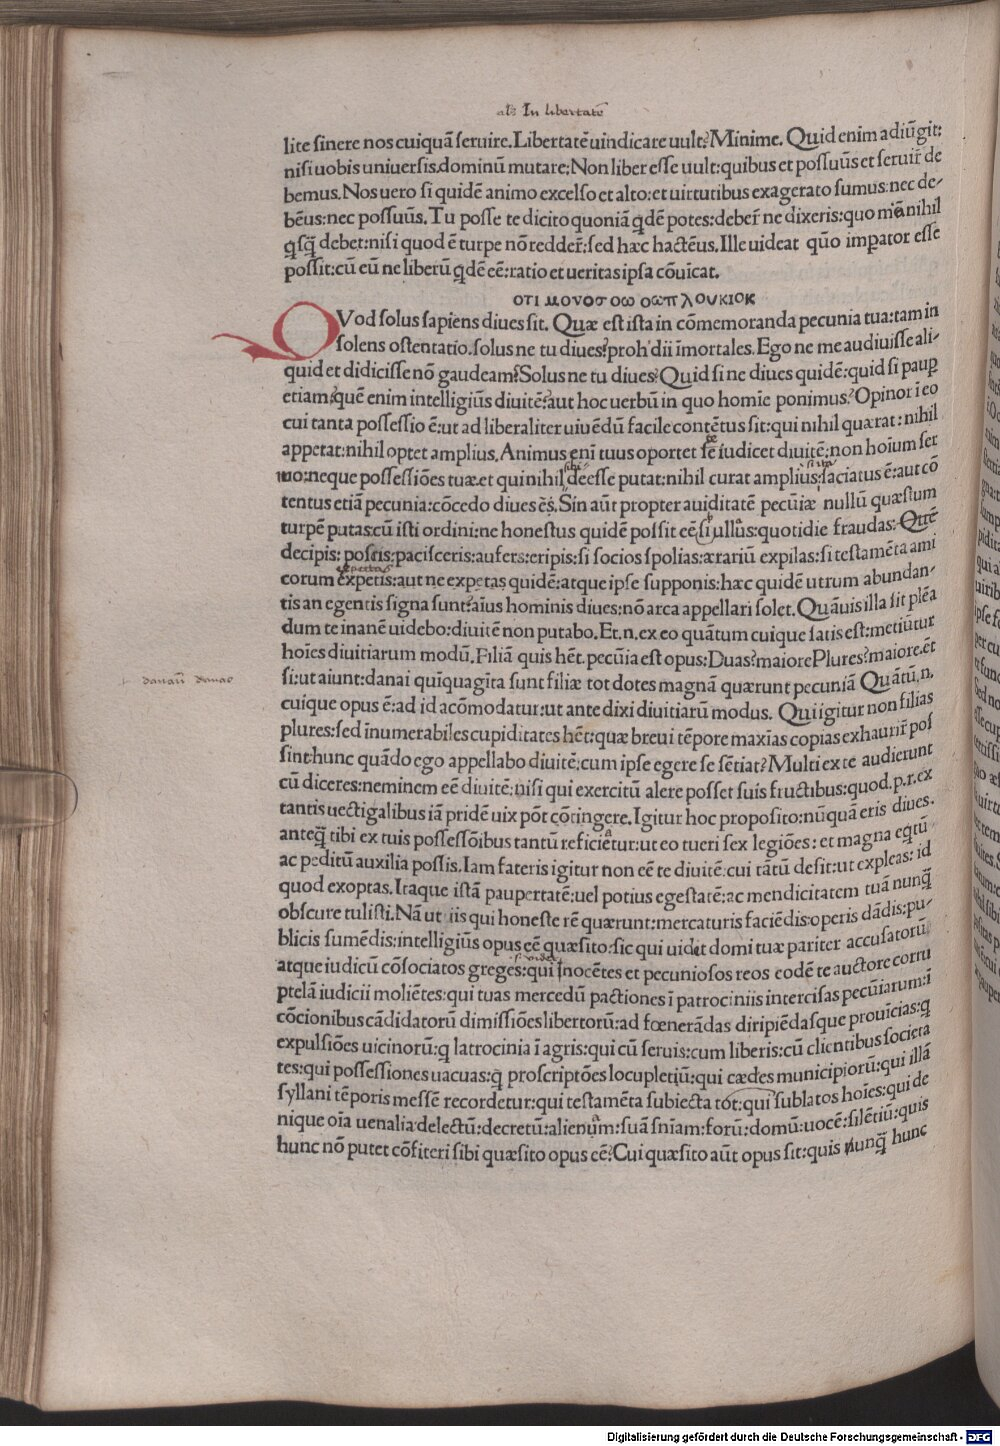 als In libertatē
lite sinere nos cuiquā seruire. Libertatē uindicare uult? Minime. Quid enim adiūgit:
nisi uobis uniuersis.dominū mutare: Non liber esse uult: quibus et possuūs et seruir̄ de
bemus. Nos uero si quidē animo excelso et alto: et uirtutibus exagerato sumus: nec de-
bēus: nec possuūs. Tu posse te dicito quoniā q̄dē potes: deber̄ ne dixeris: quo mā nihil
q̄sq̄ debet: nisi quod ē turpe nō redder̄: sed hæc hactēus. Ille uideat quō imperator esse
possit: cū eū ne liberū q̄dē eē: ratio et ueritas ipsa cōuīcat.
οτι μονοσ οω οωπλουκιοκ
QVod solus sapiens diues sit. Quæ est ista in cōmemoranda pecunia tua: tam in
solens ostentatio. solus ne tu diues? proh' dii īmortales. Ego ne me audiuisse ali-
quid et didicisse nō gaudeam? Solus ne tu diues? Quid si ne diues quidē: quid si paup
etiam? quē enim intelligiūs diuitē? aut hoc uerbū in quo homīe ponimus? Opinor ī eo
cui tanta possessio ē: ut ad liberaliter uiuēdū facile contētus sit: qui nihil quærat: nihil
appetat: nihil optet amplius. Animus enī tuus oportet se iudicet diuitē: non hoīum ser
mo: neque possessiōes tuæ. et qui nihil sibi deesse putat: nihil curat amplius: saciatus ē: aut cō
tentus etiā pecunia: cōcedo diues ēs. Sin aūt propter auiditatē pecūiæ nullū quæstum
turpē putas: cū isti ordini: ne honestus quidē possit eē si ullus: quotidie fraudas: Quē
decipis: poscis: pacisceris: aufers: eripis: si socios spolias: ærariū expilas: si testamēta ami
expectas
corum expetis: aut ne expetas quidē: atque ipse supponis: hæc quidē utrum abundan-
tis an egentis signa sunt? aīus hominis diues: nō arca appellari solet. Quāuis illa sit plēa
dum te inanē uidebo: diuitē non putabo. Et .n. ex eo quātum cuique satis est: metiūtur
hoīes diuitiarum modū. Filiā quis hēt. pecūia est opus: Duas? maiore Plures? maiore. ēt
si: ut aiunt: danai quīquagīta sunt filiæ tot dotes magnā quærunt pecuniā Quātū .n.
danaū danao
cuique opus ē: ad id acōmodatur: ut ante dixi diuitiarū modus. Qui igitur non filias
plures: sed īnumerabiles cupiditates hēt: quæ breui tēpore maxīas copias exhaurir̄ pos
sint: hunc quādo ego appellabo diuitē: cum ipse egere se sētiat? Multi ex te audierunt
cū diceres: neminem eē diuitē: nisi qui exercitū alere posset suis fructibus: quod .p.r. ex
tantis uectigalibus iā pridē uix pōt cōtingere. Igitur hoc proposito: nūquā eris diues.
anteq̄ tibi ex tuis possessōibus tantū reficietur: ut eo tueri sex legiōes: et magna eq̄tū
ac peditū auxilia possis. Iam fateris igitur non eē te diuitē: cui tātū desit: ut expleas: id
quod exoptas. Itaque istā paupertatē: uel potius egestatē: ac mendicitatem tuā nunq̄
obscure tulisti. Nā ut iis qui honeste rē quærunt: mercaturis faciēdis: operis dādis: pu-
blicis sumēdis: intelligiūs opus eē quæsito: sic qui uidet domi tuæ pariter accusatorū
atque iudicū cōsociatos greges: qui īnocētes et pecuniosos reos eodē te auctore corru
ptelā iudicii moliētes: qui tuas mercedū pactiones ī patrociniis intercisas pecūiarum: ī
cōcionibus cādidatorū dimissiōes libertorū: ad fœnerādas diripiēdasque prouīcias: q̄
expulsiōes uicinorū: q̄ latrocinia ī agris: qui cū seruis: cum liberis: cū clientibus societa
tes: qui possessiones uacuas: q̄ proscriptōes locupletiū: qui cædes municipiorū: qui illā
syllani tēporis messē recordetur: qui testamēta subiecta tot: qui sublatos hoīes: qui de
nique oīa uenalia delectū: decretū: alienum: suā sniam: forū: domū: uocē: silētiū: quis
hunc nō putet cōfiteri sibi quæsito opus eē? Cui quæsito aūt opus sit: quis nunq̄ hunc
Digitalisierung gefördert durch die Deutsche Forschungsgemeinschaft - DFG